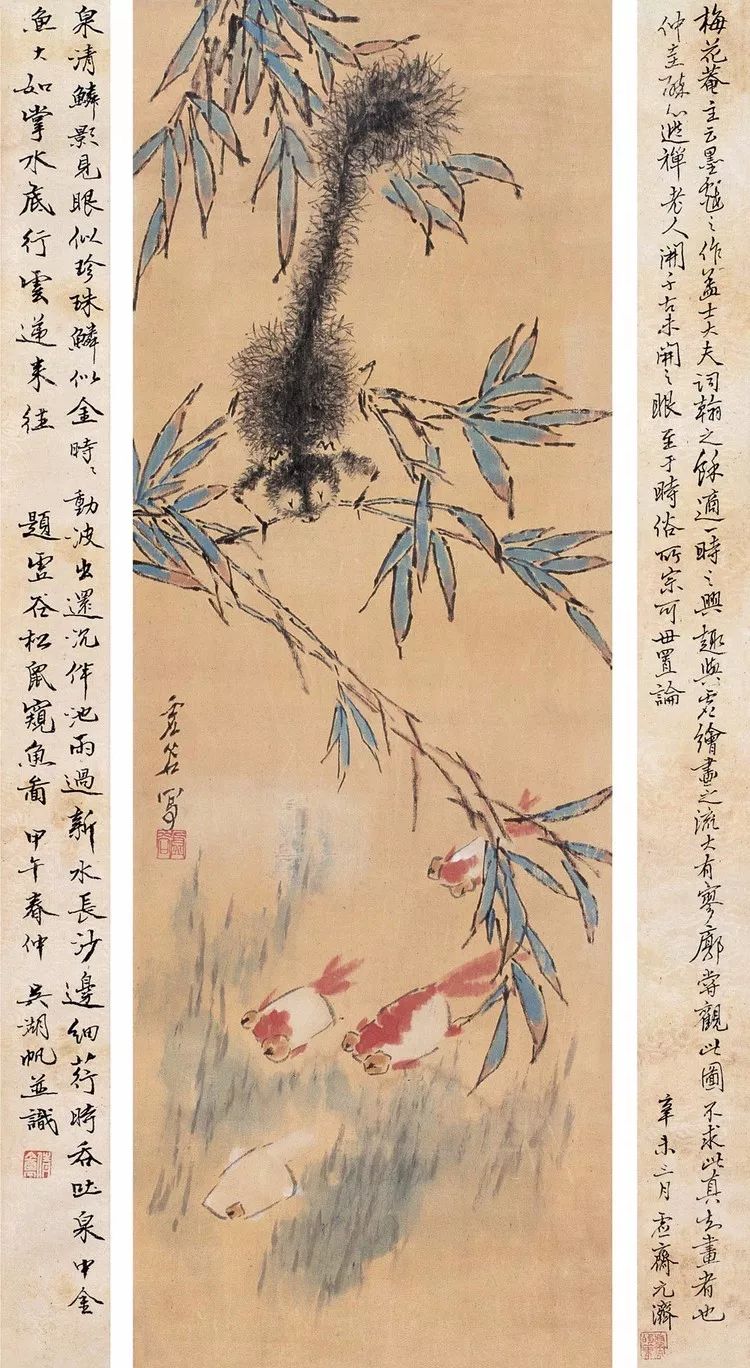 梅花菴主云墨戲之作蓋士大夫詞翰之餘適一時之興趣與夫繪畫之流大有寥廓嘗觀此圖不求此真畫者也
仲圭醉心逃禪老人開千古未開之眼至于時俗所宗可毋置論
辛未三月虛齋元濟
虛谷寫
泉清鱗影見眼似珍珠鱗似金時〻動波出還沉伴池雨過新水長沙邊細荇時吞吐泉中金
魚大如掌水底行雲遞來往
題虛谷松鼠窺魚圖 甲午春仲 吳湖帆並識